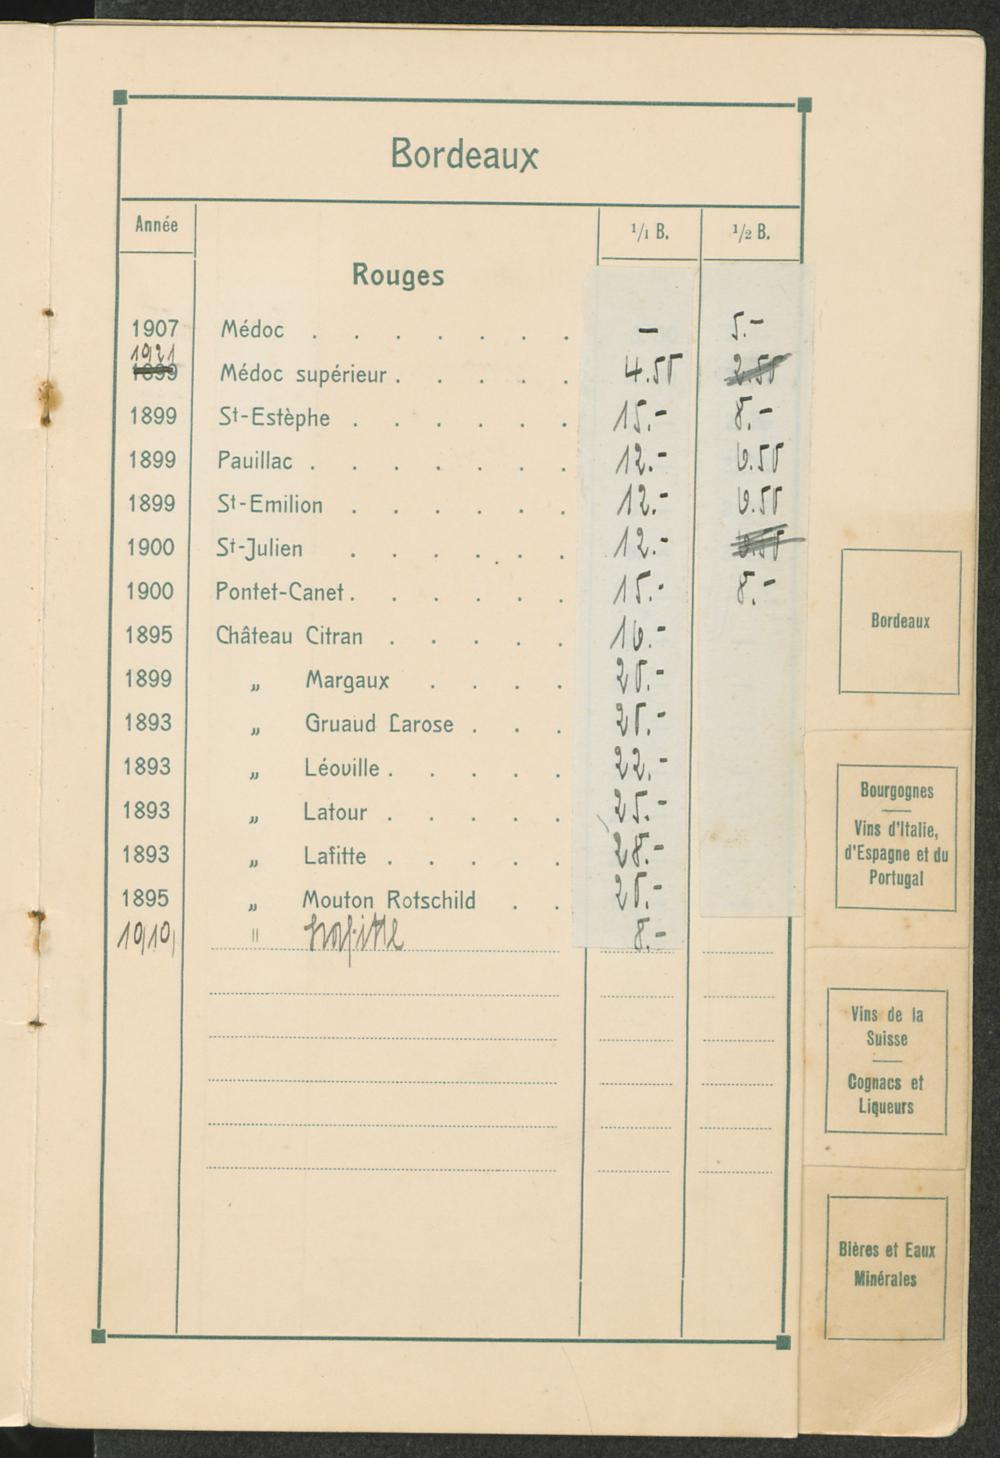 Bordeaux
Année 1/1 B. 1/2 B.
Rouges
1907 Médoc . . . . . . . – 5.-
1921
1899 Médoc supérieur . . . . . 4.50 2.50
1899 St-Estèphe . . . . . . 15.- 8.-
1899 Pauillac . . . . . . . 12.- 6.50
1899 St-Emilion . . . . . . 12.- 6.50
1900 St-Julien . . . . . . 12.- 6.50
1900 Pontet-Canet . . . . . . 15.- 8.-
1895 Château Citran . . . . . 16.-
1899 „ Margaux . . . . 20.-
1893 „ Gruaud Larose . . .
1893 „ Léoville . . . . . 22.-
1893 „ Latour . . . . . 25.-
1893 „ Lafitte . . . . . 28.-
1895 „ Mouton Rotschild . .
" Lafitte 8.-
Bordeaux
Bourgognes
Vins d'Italie,
d'Espagne et du
Portugal
Vins de la
Suisse
Cognacs et
Liqueurs
Bières et Eaux
Minérales